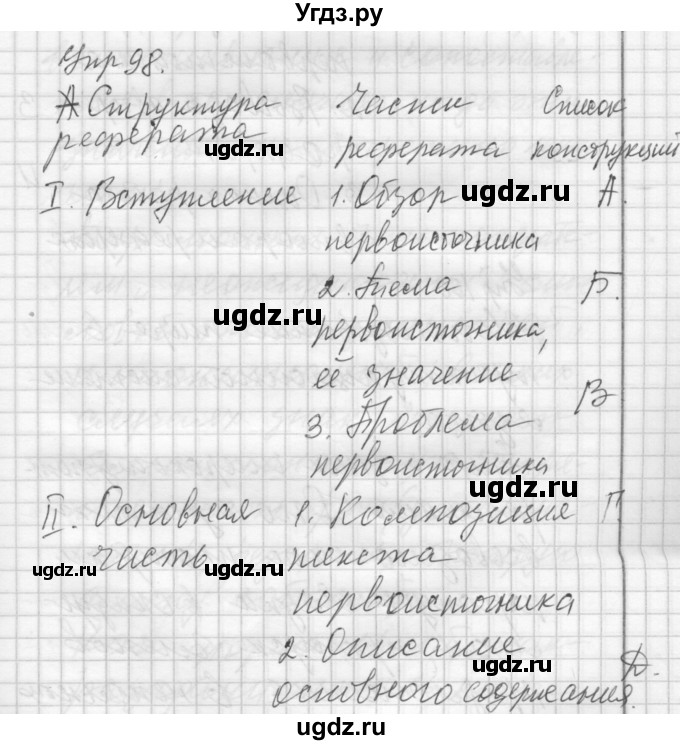 Угдз.ру
Упр 98.
А Структура Части Список
реферата реферата конструкций
ugdz.ru
I. Вступление 1. Обзор ugdz.ru А.
первоисточника
2. Тема Б.
ugdz.ru первоисточника,
её значение
В
3. Проблема
первоисточника
ugdz.ru
II. Основная 1. Композиция Г
часть текста
ugdz.ru ugdz.ru
первоисточника
2. Описание
ugdz.ru Д.
основного содержания.
ugdz.ru